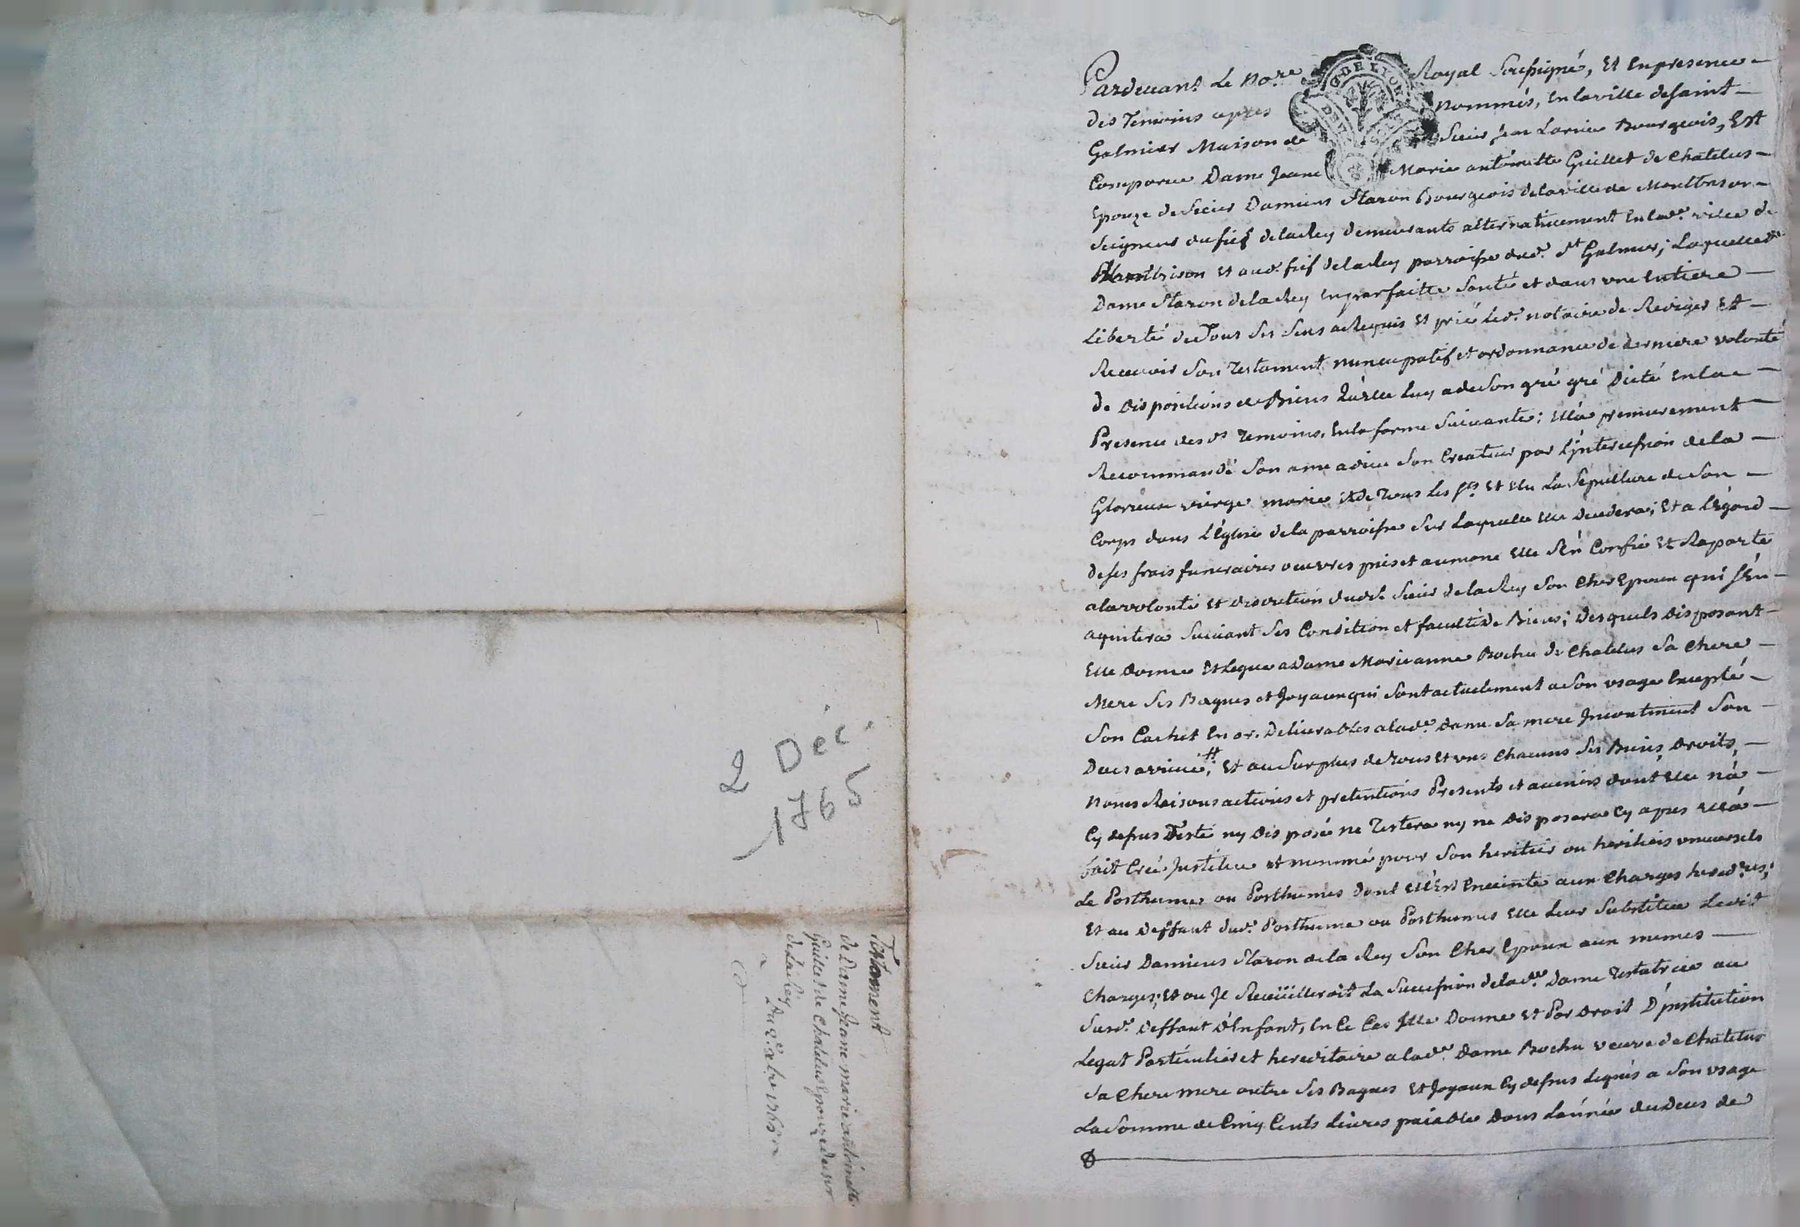 2 Déc.
1765
Testament
de Dame Jeane marie antoinette
Guillet de Chatelus Epouze du sr
delaRey
Du 2e xbre 1765
Pardevant Le Nore Royal Soussigné, Et En presence
des Temoins apres nommés, En laville de saint
Galmier Maison de Sieur jean Bourgeois, Est
Comparue Dame Jeane Marie antoinette Guillet de Chatelus
Epouze de Sieur Damiens Staron Bourgeois delaville de Montbrison
Seigneur du fief delaRey demeurants alternativement En lade ville de
Montbrison Et aud. fief delaRey parroisse dud. St Galmier; Laquelle de
Dame Staron delaRey En parfaitte Santé et dans une Entiere
Liberté de Tous Ses Sens a Requis Et prié led. notaire de Rediger Et
Recevoir Son Testament nuncupatif et ordonnance de derniere volonté
de dispositions de Biens Qu'elle Luy a de Son gré gré Dicté En la
Presence desds Temoins, En la forme Suivante; Ella premierement
Recommandé Son ame a dieu Son Createur par L'jntercession de la
Glorieuse vierge marie et de Tous Les Sts Et Elu La Sepulture de Son
Corps dans L'Eglise de la parroisse Sur Laquelle Elle Decedera; Et a L'egard
de Ses frais funeraires oeuvres pies et aumone Elle S'En Confie Et Raporte
a la volonté Et discretion dudt Sieur delaRey Son Cher Epoux qui S'En
aquitera Suivant Ses Condition et faculté de Biens; Desquels disposant
Elle donne Et Legue a Dame Marie anne Bochu de Chatelus Sa Chere
Mere Ses Bagues et Joyaux qui Sont actuelement a Son usage Excepté
Son Cachet En or, Delivrables a lade Dame Sa mere Jncontinent Son
Deces arrivé; Et au Surplus de Tous Et uns Chacuns Ses Biens Droits,
Noms Raisons actions et pretentions Presents et avenirs dont Elle n'a
Cy dessus Testé ny Disposé ne Testera ny ne Disposera Cy apres Ella
fait Creé Jnstitué et nommé pour Son heritier ou heritiers universels
Le Posthume ou Posthumes dont Ell'Est Enceinte aux Charges heredres;
Et au Deffaut dud. Posthume ou Posthumes Elle Leur Substitue Ledit
Sieur Damiens Staron de la Rey Son Cher Epoux aux memes
Charges; Et ou Jl Recüeilleroit La Succession de lade Dame Testatrice au
Susd. Deffaut d'Enfant, En Ce Cas Elle Donne Et Par Droit D'jnstitution
Legat Particulier et hereditaire a lade Dame Bochu veuve de Chatelus
Sa Chere mere outre Ses Bagues Et Joyaux Cy dessus Legués a Son usage
La Somme de Cinq Cents Livres païable Dans L'année du Deces de